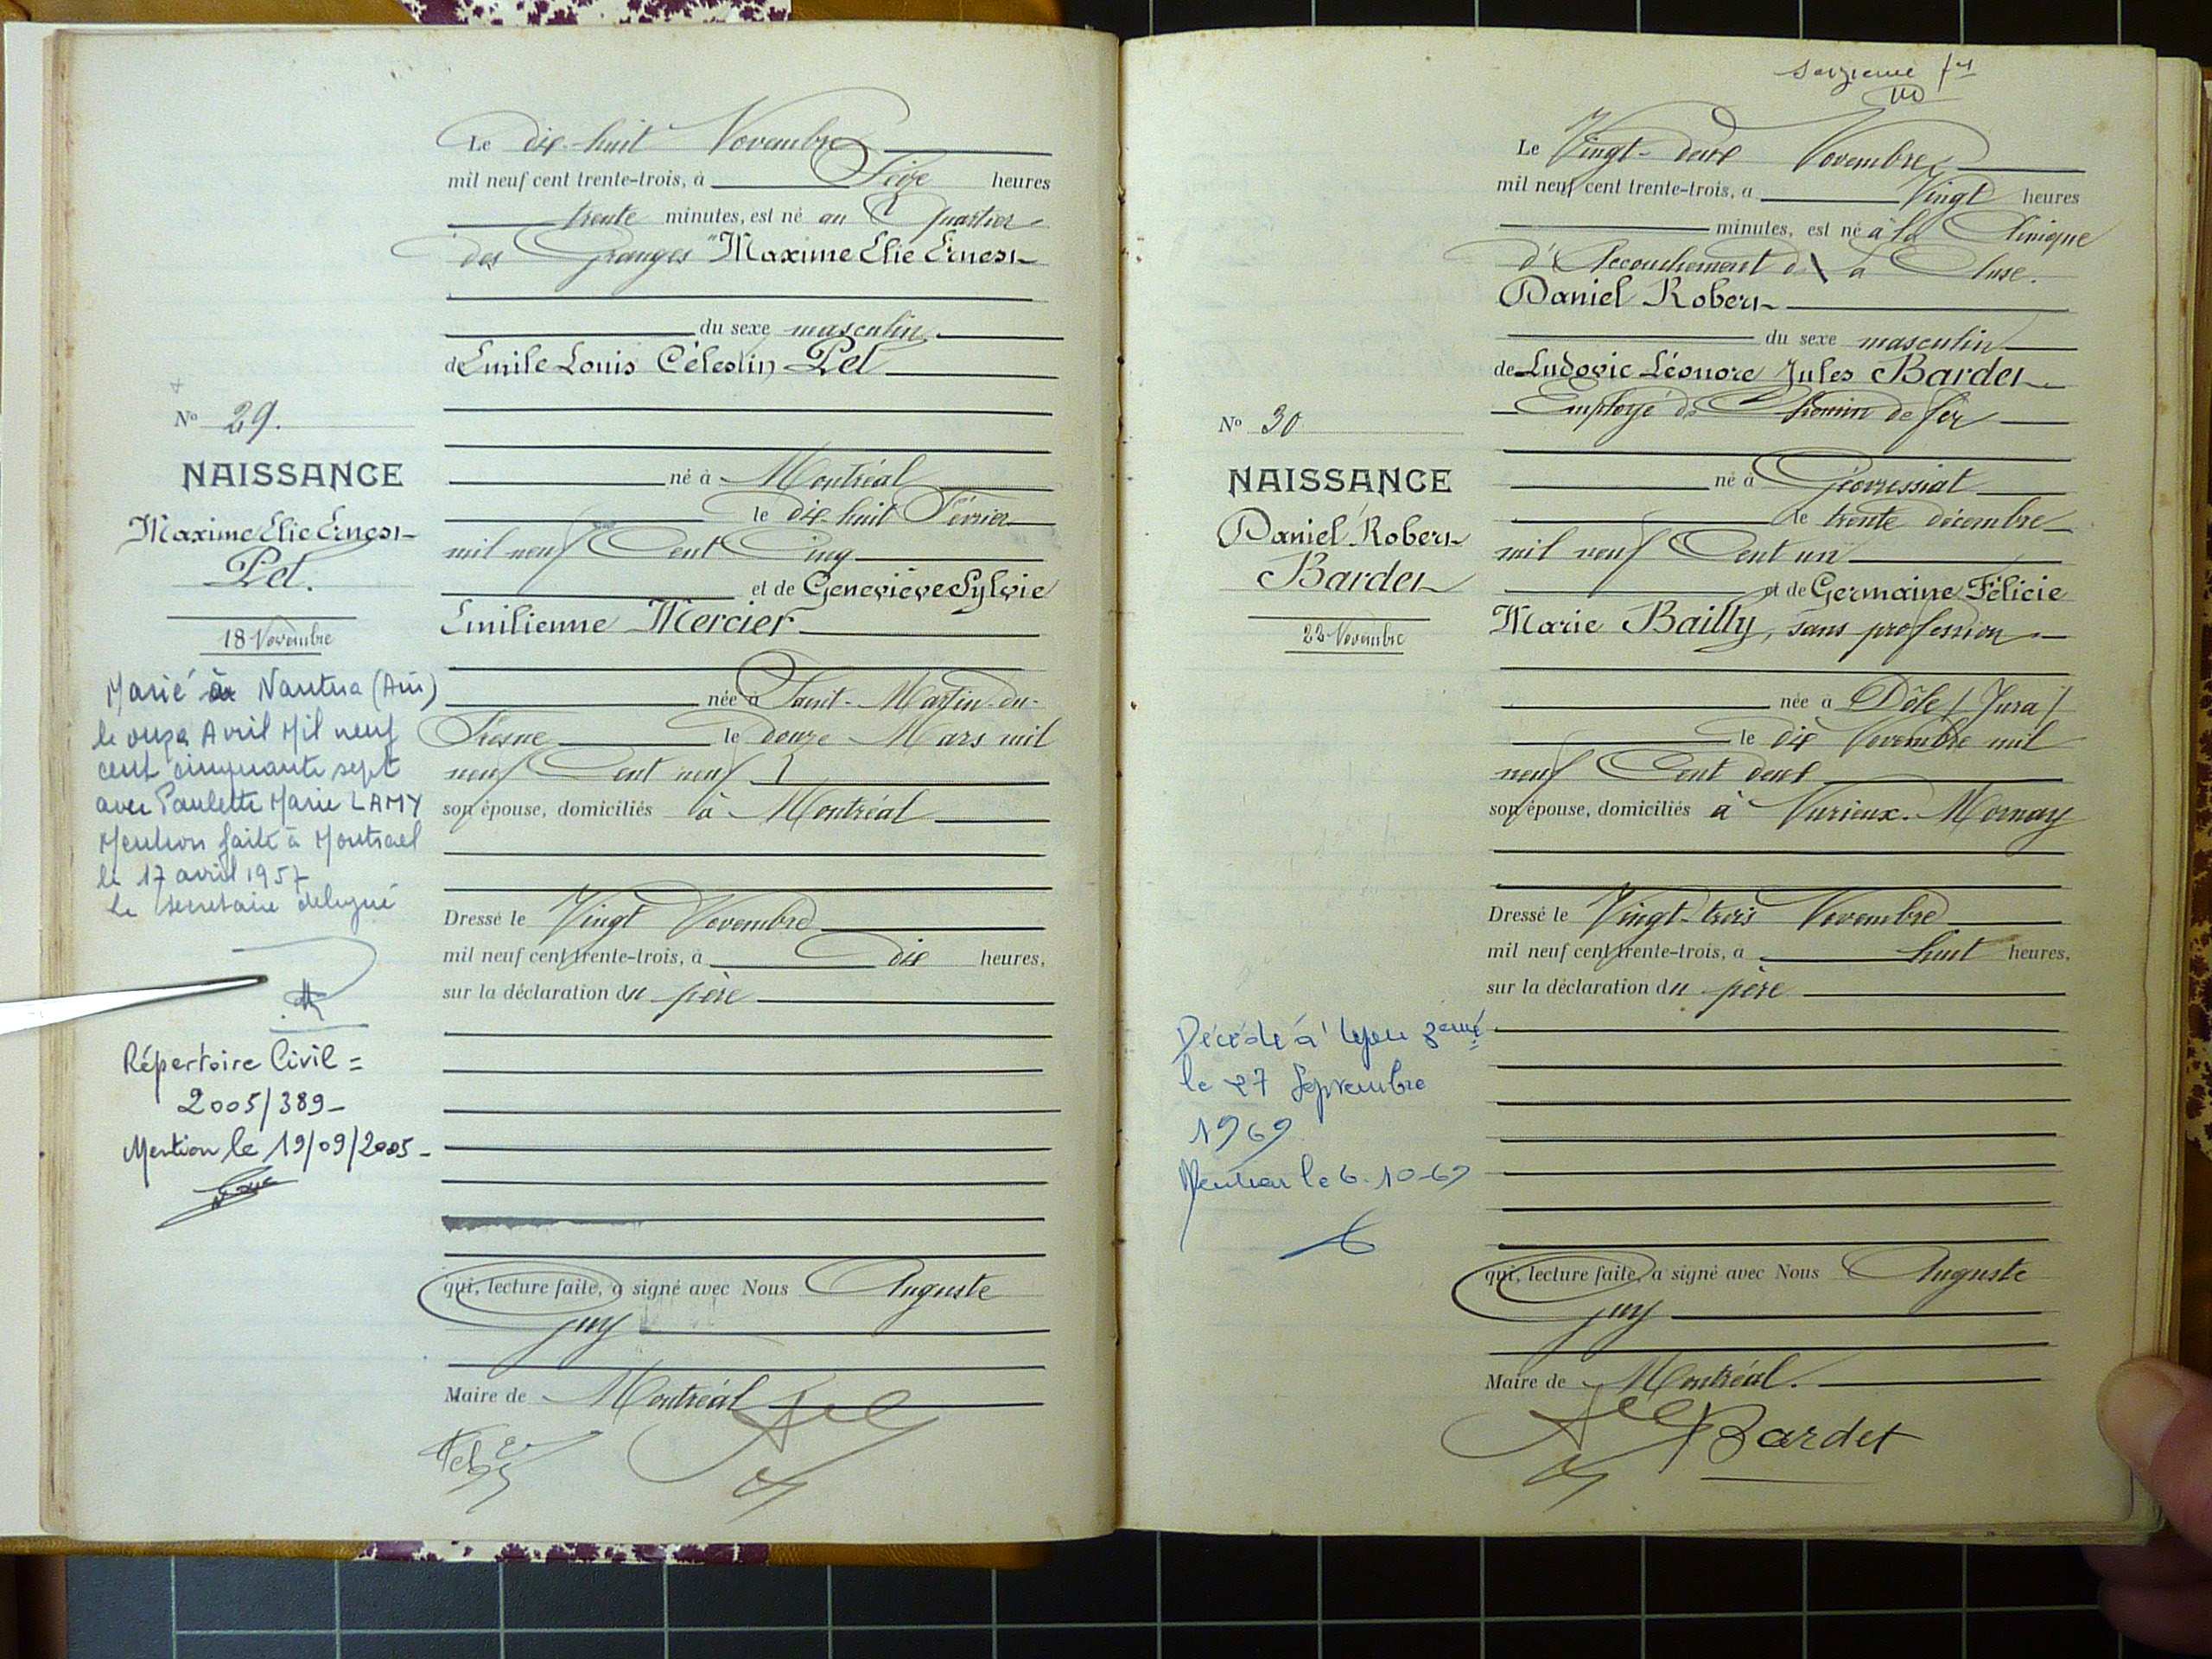 Le dix-huit Novembre
mil neuf cent trente-trois, à Seize heures
trente minutes, est né au Quartier
des Granges "Maxime Elie Ernest
du sexe masculin
de Emile Louis Célestin Pet
né à Montréal
le dix-huit Février
mil neuf Cent Cinq
et de Geneviève Sylvie
Emilienne Mercier
née à Saint-Martin-du-
Fresne le douze Mars mil
neuf Cent neuf
son épouse, domiciliés à Montréal
Dressé le Vingt Novembre
mil neuf cent trente-trois, à dix heures,
sur la déclaration du père
qui, lecture faite, a signé avec Nous Auguste
Guy
Maire de Montréal
No 29.
NAISSANCE
Maxime Elie Ernest
Pet.
18 Novembre
Marié à Nantua (Ain)
le onze Avril Mil neuf
cent cinquante sept
avec Paulette Marie LAMY
Mention faite à Montreal
le 17 avril 1957
Le secretaire delegué
Répertoire Civil =
2005/389-
Mention le 19/09/2005-
seizième
Le Vingt-deux Novembre
mil neuf cent trente-trois, a Vingt heures
minutes, est né à la Clinique
d'Accouchement de La Cluse.
Daniel Robert
du sexe masculin
de Ludovic Léonore Jules Bardet
Employé de Chemin de fer
né à Géovressiat
le trente décembre
mil neuf Cent un
et de Germaine Félicie
Marie Bailly, sans profession
née a Dôle (Jura)
le dix Novembre mil
neuf Cent deux
son épouse, domiciliés à Vurieux-Mornay
Dressé le Vingt-trois Novembre
mil neuf cent trente-trois, a huit heures,
sur la déclaration du père
qui, lecture faite, a signé avec Nous Auguste
Guy
Maire de Montréal.
Bardet
No 30
NAISSANCE
Daniel Robert
Bardet
22 Novembre
Décédé à Lyon 3eme
le 27 Septembre
1969
Mention le 6-10-69